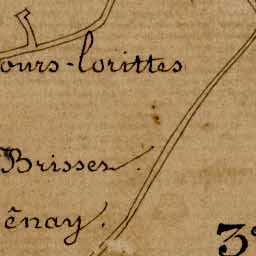 ours-lorittes
Brisses.
ênay.
3e